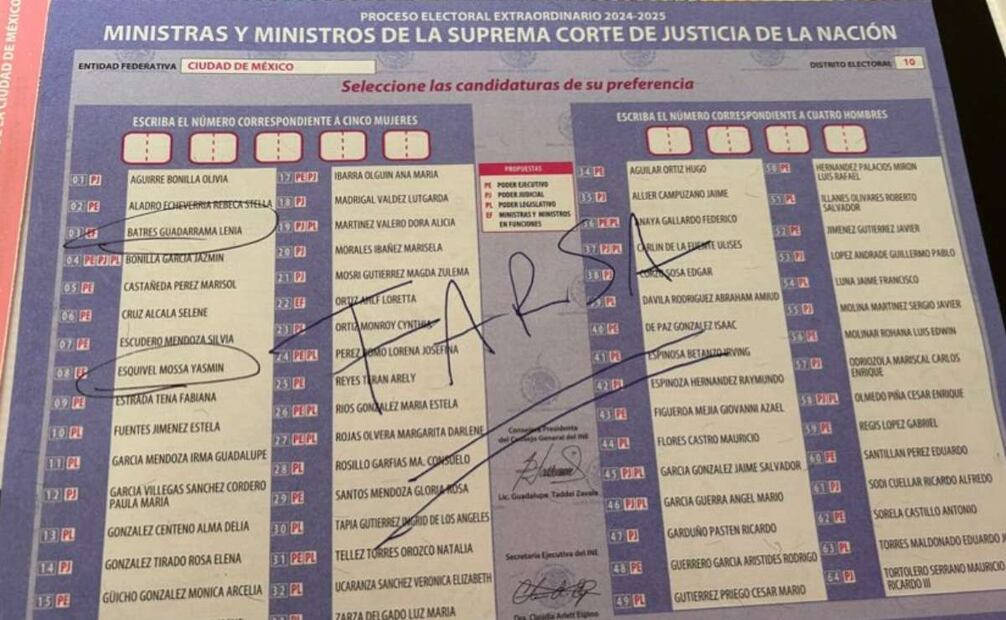 LA CIUDAD DE MÉXICO
PROCESO ELECTORAL EXTRAORDINARIO 2024-2025
MINISTRAS Y MINISTROS DE LA SUPREMA CORTE DE JUSTICIA DE LA NACIÓN
ENTIDAD FEDERATIVA CIUDAD DE MÉXICO
DISTRITO ELECTORAL 10
Seleccione las candidaturas de su preferencia
ESCRIBA EL NÚMERO CORRESPONDIENTE A CINCO MUJERES
01 PJ AGUIRRE BONILLA OLIVIA
02 PE ALADRO ECHEVERRIA REBECA STELLA
03 EF BATRES GUADARRAMA LENIA
04 PE PJ PL BONILLA GARCIA JAZMIN
05 PE CASTAÑEDA PEREZ MARISOL
06 PE CRUZ ALCALA SELENE
07 PE ESCUDERO MENDOZA SILVIA
08 EF ESQUIVEL MOSSA YASMIN
09 PE ESTRADA TENA FABIANA
10 PL FUENTES JIMENEZ ESTELA
11 PL GARCIA MENDOZA IRMA GUADALUPE
12 PJ GARCIA VILLEGAS SANCHEZ CORDERO
PAULA MARIA
13 PL GONZALEZ CENTENO ALMA DELIA
14 PJ GONZALEZ TIRADO ROSA ELENA
15 PE GÜICHO GONZALEZ MONICA ARCELIA
17 PE PJ IBARRA OLGUIN ANA MARIA
18 PJ MADRIGAL VALDEZ LUTGARDA
19 PJ PL MARTINEZ VALERO DORA ALICIA
20 PJ MORALES IBAÑEZ MARISELA
21 PJ MOSRI GUTIERREZ MAGDA ZULEMA
22 EF ORTIZ AHLF LORETTA
23 PL ORTIZ MONROY CYNTHIA
24 PE PL PEREZ ROMO LORENA JOSEFINA
25 PE REYES TERAN ARELY
26 PE PL RIOS GONZALEZ MARIA ESTELA
27 PE PL ROJAS OLVERA MARGARITA DARLENE
28 PL ROSILLO GARFIAS MA. CONSUELO
29 PE SANTOS MENDOZA GLORIA ROSA
30 PL TAPIA GUTIERREZ INGRID DE LOS ANGELES
31 PE PL TELLEZ TORRES OROZCO NATALIA
32 PL UCARANZA SANCHEZ VERONICA ELIZABETH
ZARZA DELGADO LUZ MARIA
PROPUESTAS
PE PODER EJECUTIVO
PJ PODER JUDICIAL
PL PODER LEGISLATIVO
EF MINISTRAS Y MINISTROS
EN FUNCIONES
FARSA
Consejera Presidenta
del Consejo General del INE
Lic. Guadalupe Taddei Zavala
Secretaria Ejecutiva del INE
Dra. Claudia Arlett Espino
ESCRIBA EL NÚMERO CORRESPONDIENTE A CUATRO HOMBRES
34 PE AGUILAR ORTIZ HUGO
35 PJ ALLIER CAMPUZANO JAIME
36 PE PL ANAYA GALLARDO FEDERICO
37 PJ PL CARLIN DE LA FUENTE ULISES
38 PJ CORZO SOSA EDGAR
PL DAVILA RODRIGUEZ ABRAHAM AMIUD
40 PE DE PAZ GONZALEZ ISAAC
41 PE ESPINOSA BETANZO IRVING
42 PL ESPINOZA HERNANDEZ RAYMUNDO
43 PE FIGUEROA MEJIA GIOVANNI AZAEL
44 PL FLORES CASTRO MAURICIO
45 PJ PL GARCIA GONZALEZ JAIME SALVADOR
46 PJ PL GARCIA GUERRA ANGEL MARIO
47 PJ GARDUÑO PASTEN RICARDO
48 PE GUERRERO GARCIA ARISTIDES RODRIGO
49 PL GUTIERREZ PRIEGO CESAR MARIO
50 PE HERNANDEZ PALACIOS MIRON
LUIS RAFAEL
51 PL ILLANES OLIVARES ROBERTO
SALVADOR
52 PE JIMENEZ GUTIERREZ JAVIER
53 PJ LOPEZ ANDRADE GUILLERMO PABLO
54 PL LUNA JAIME FRANCISCO
55 PJ MOLINA MARTINEZ SERGIO JAVIER
56 PE MOLINAR ROHANA LUIS EDWIN
57 PJ ODRIOZOLA MARISCAL CARLOS
ENRIQUE
58 PJ PL OLMEDO PIÑA CESAR ENRIQUE
59 PE REGIS LOPEZ GABRIEL
60 PE SANTILLAN PEREZ EDUARDO
61 PJ SODI CUELLAR RICARDO ALFREDO
62 PE SORELA CASTILLO ANTONIO
63 PL TORRES MALDONADO EDUARDO
64 PJ TORTOLERO SERRANO MAURICIO
RICARDO III